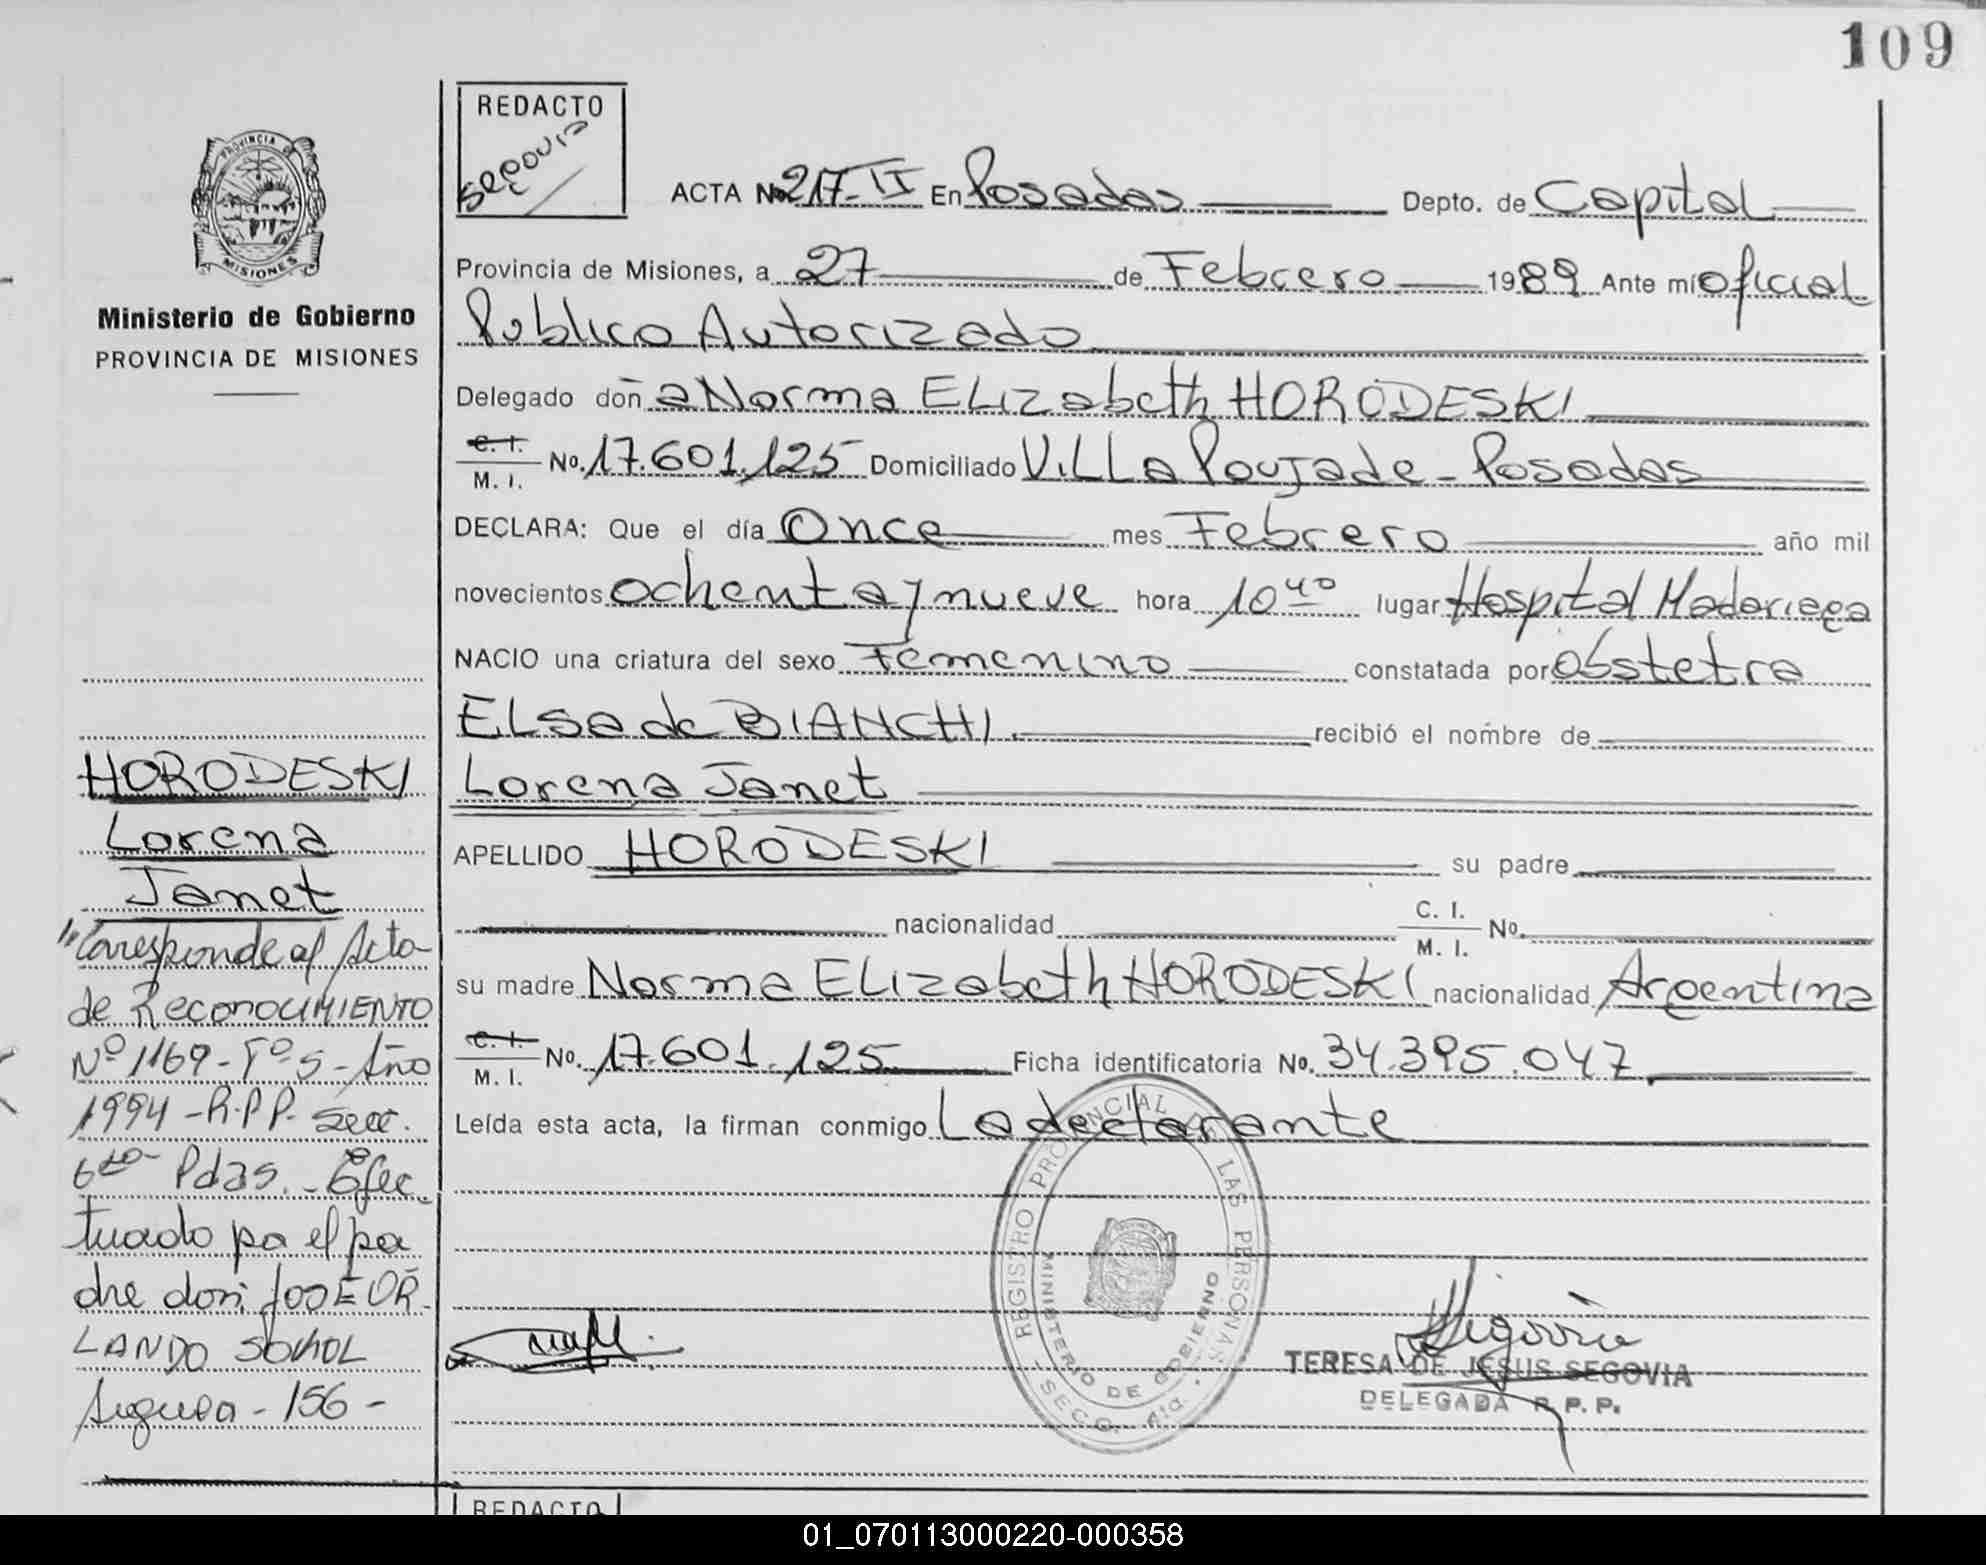 109
REDACTO
Segovia
PROVINCIA DE
MISIONES
Ministerio de Gobierno
PROVINCIA DE MISIONES
ACTA No 217-II En Posadas Depto. de Capital
Provincia de Misiones, a 27 de Febrero 1989 Ante mí Oficial
Publico Autorizado
Delegado don a Norma ELizabeth HORODESKI
C. I. M. I. No. 17.601.125 Domiciliado ViLLa Poujade - Posadas
DECLARA: Que el día Once mes Febrero año mil
novecientos ochenta y nueve hora 10 40 lugar Hospital Madariaga
NACIO una criatura del sexo Femenino constatada por Obstetra
ELsa de BIANCHI. recibió el nombre de
Lorena Janet
APELLIDO HORODESKI su padre
nacionalidad C. I. M. I. No.
su madre Norma ELizabeth HORODESKI nacionalidad Argentina
C. I. M. I. No. 17.601.125 Ficha identificatoria No. 34.395.047
Leída esta acta, la firman conmigo La declarante
HORODESKI
Lorena
Janet
"Coresponde al Acta
de Reconocimiento
Nº 1169 - Tº 5 - Año
1994 - R.P.P. Secc.
6ta Pdas. - Efec
tuado po el pa
dre don JOSE OR
LANDO SOKOL
- 156 -
REGISTRO PROVINCIAL DE LAS PERSONAS
MINISTERIO DE GOBIERNO
- SECC. 6ta. -
Segovia
TERESA DE JESUS SEGOVIA
DELEGADA R. P. P.
REDACTO
01_070113000220-000358